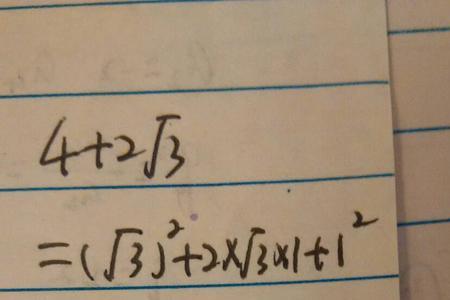 4+2√3
=(√3)²+2×√3×1+1²